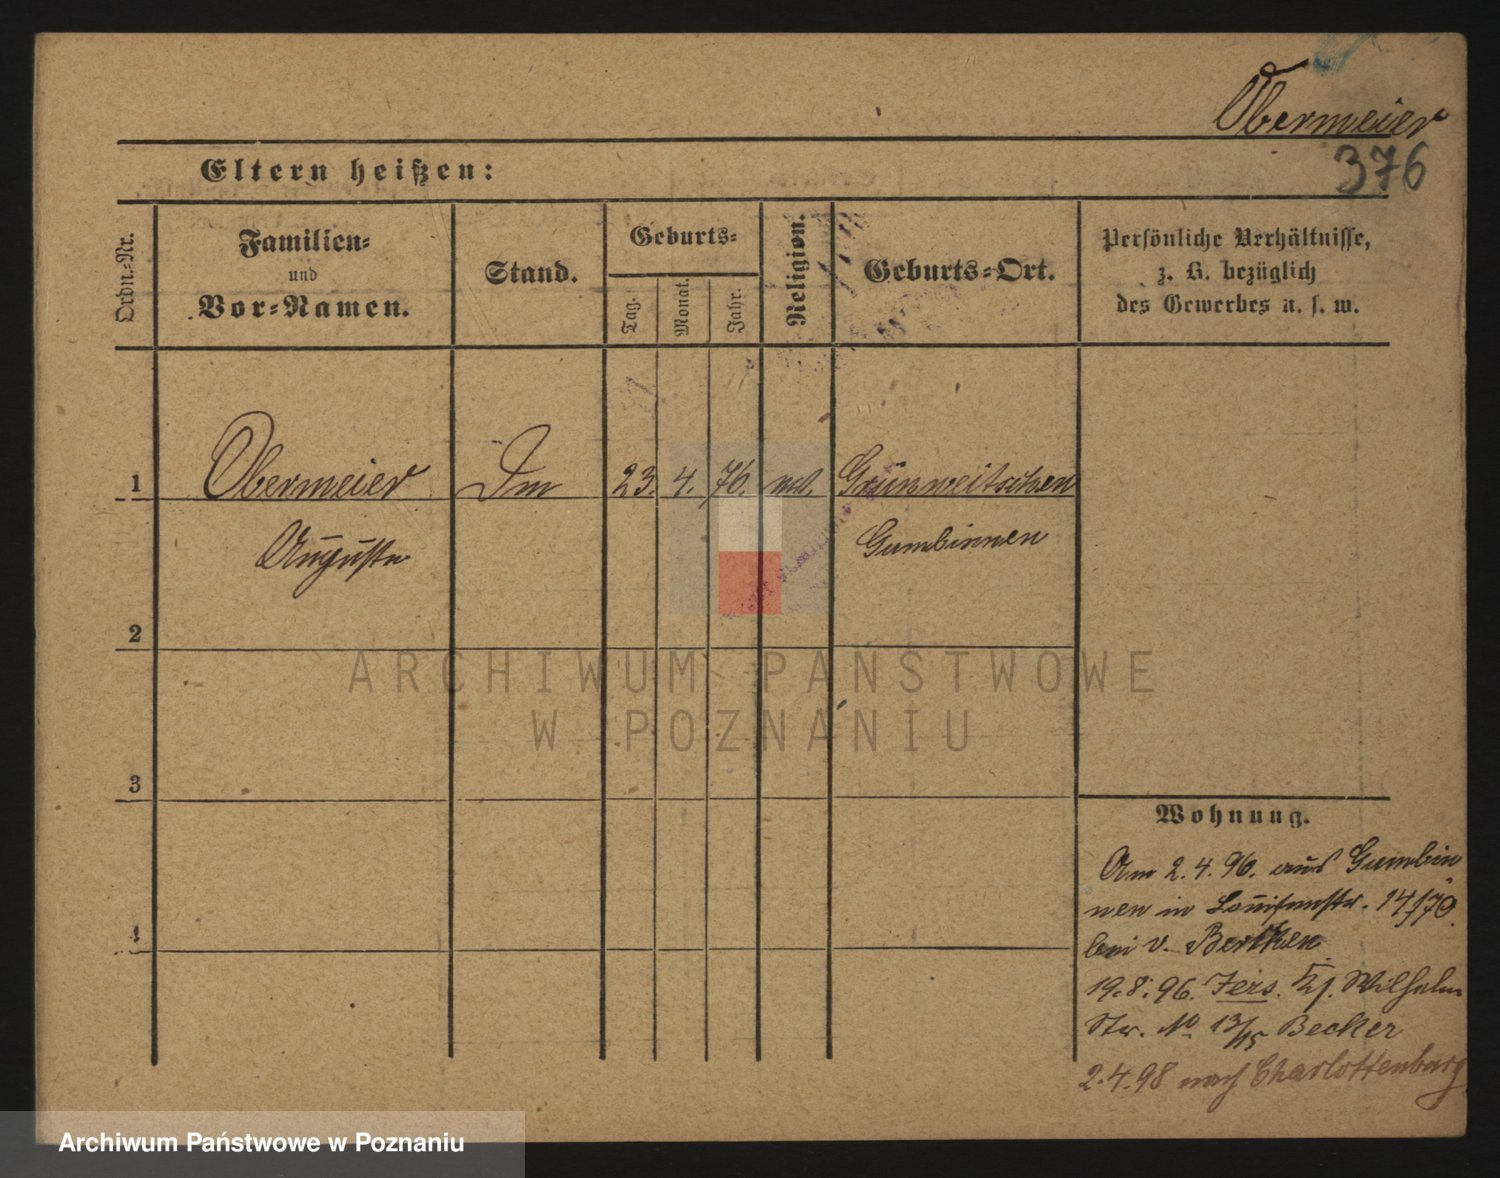 Obermeier
376
Eltern heißen:
Ordn.-Nr.
Familien-
und
Vor-Namen.
Stand.
Geburts-
Tag.
Monat.
Jahr.
Religion.
Geburts-Ort.
Persönliche Verhältnisse,
z. B. bezüglich
des Gewerbes u. s. w.
1 Obermeier 23. 4. 76. Grünweitschen
Auguste Gumbinnen
2
3
4
Wohnung.
Am 2. 4. 96. aus Gumbin
nen in Louisenstr. 14/170
bei v. Berken
19. 8. 96. Jers. Wilhelm
Str. No 13/15 Becker
2. 4. 98 nach Charlottenburg
ARCHIWUM PAŃSTWOWE
W POZNANIU
Archiwum Państwowe w Poznaniu